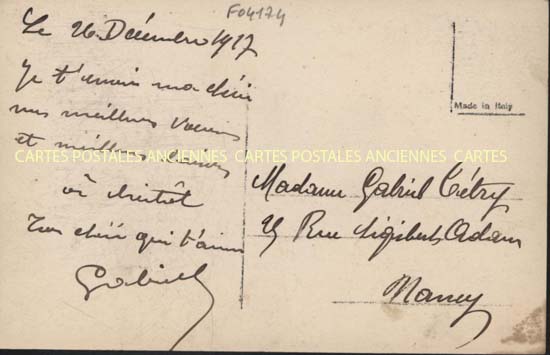 F04174
Le 26 Décembre 1917
Je t'envoie ma chérie
mes meilleurs vœux
et meilleurs baisers
à bientôt
Ton chéri qui t'aime
Gabriel
Made in Italy
CARTES POSTALES ANCIENNES CARTES POSTALES ANCIENNES CARTES
Madame Gabriel Tétry
25 Rue Sigisbert Adam
Nancy